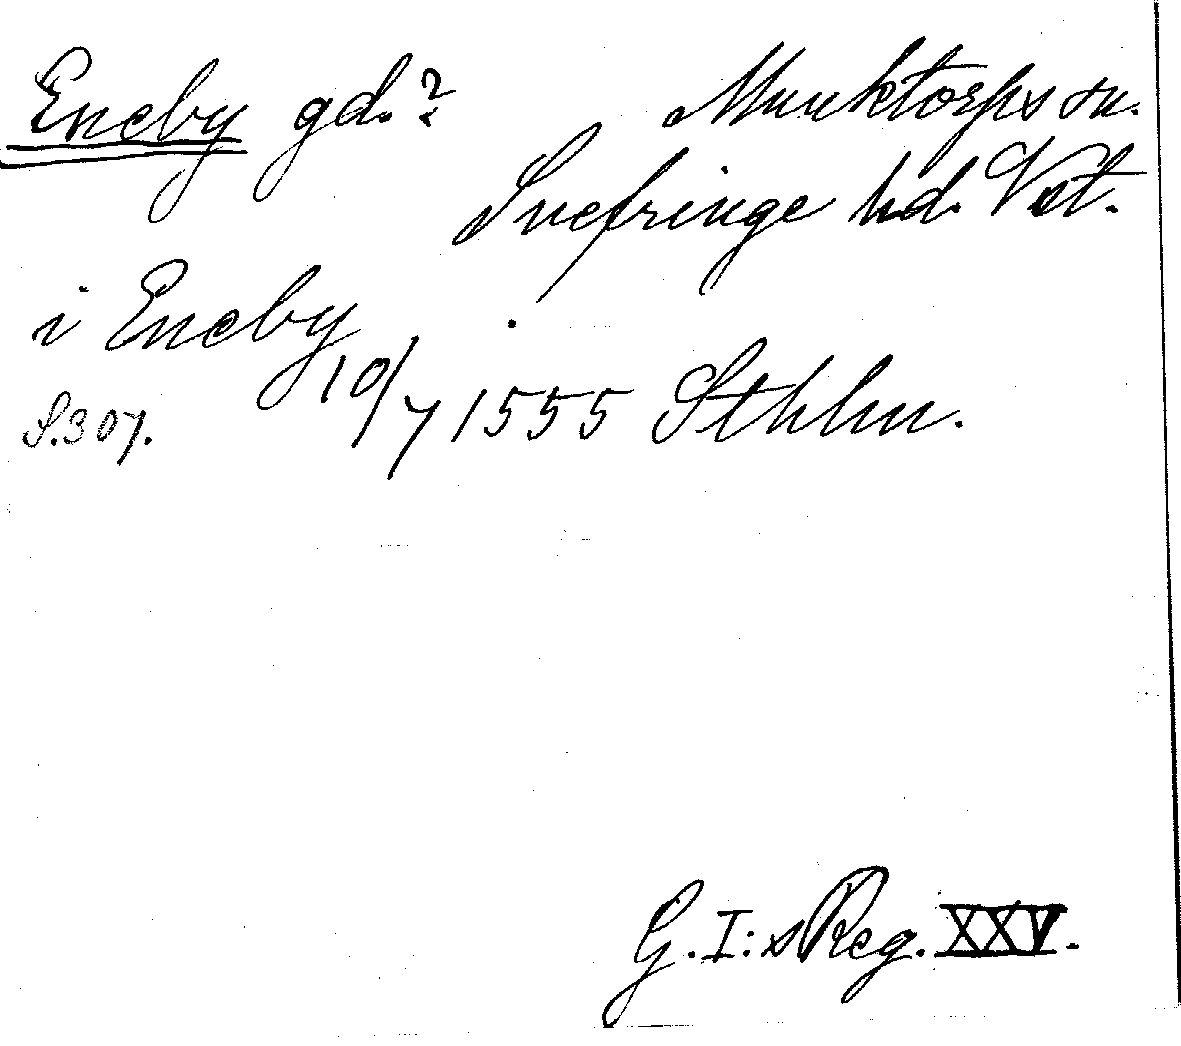 Eneby gd.? Munktorps sn.
Snefringe hd. Vst.
i Eneby
10/7 1555 Sthlm.
S.307.
G.I:s Reg. XXV.